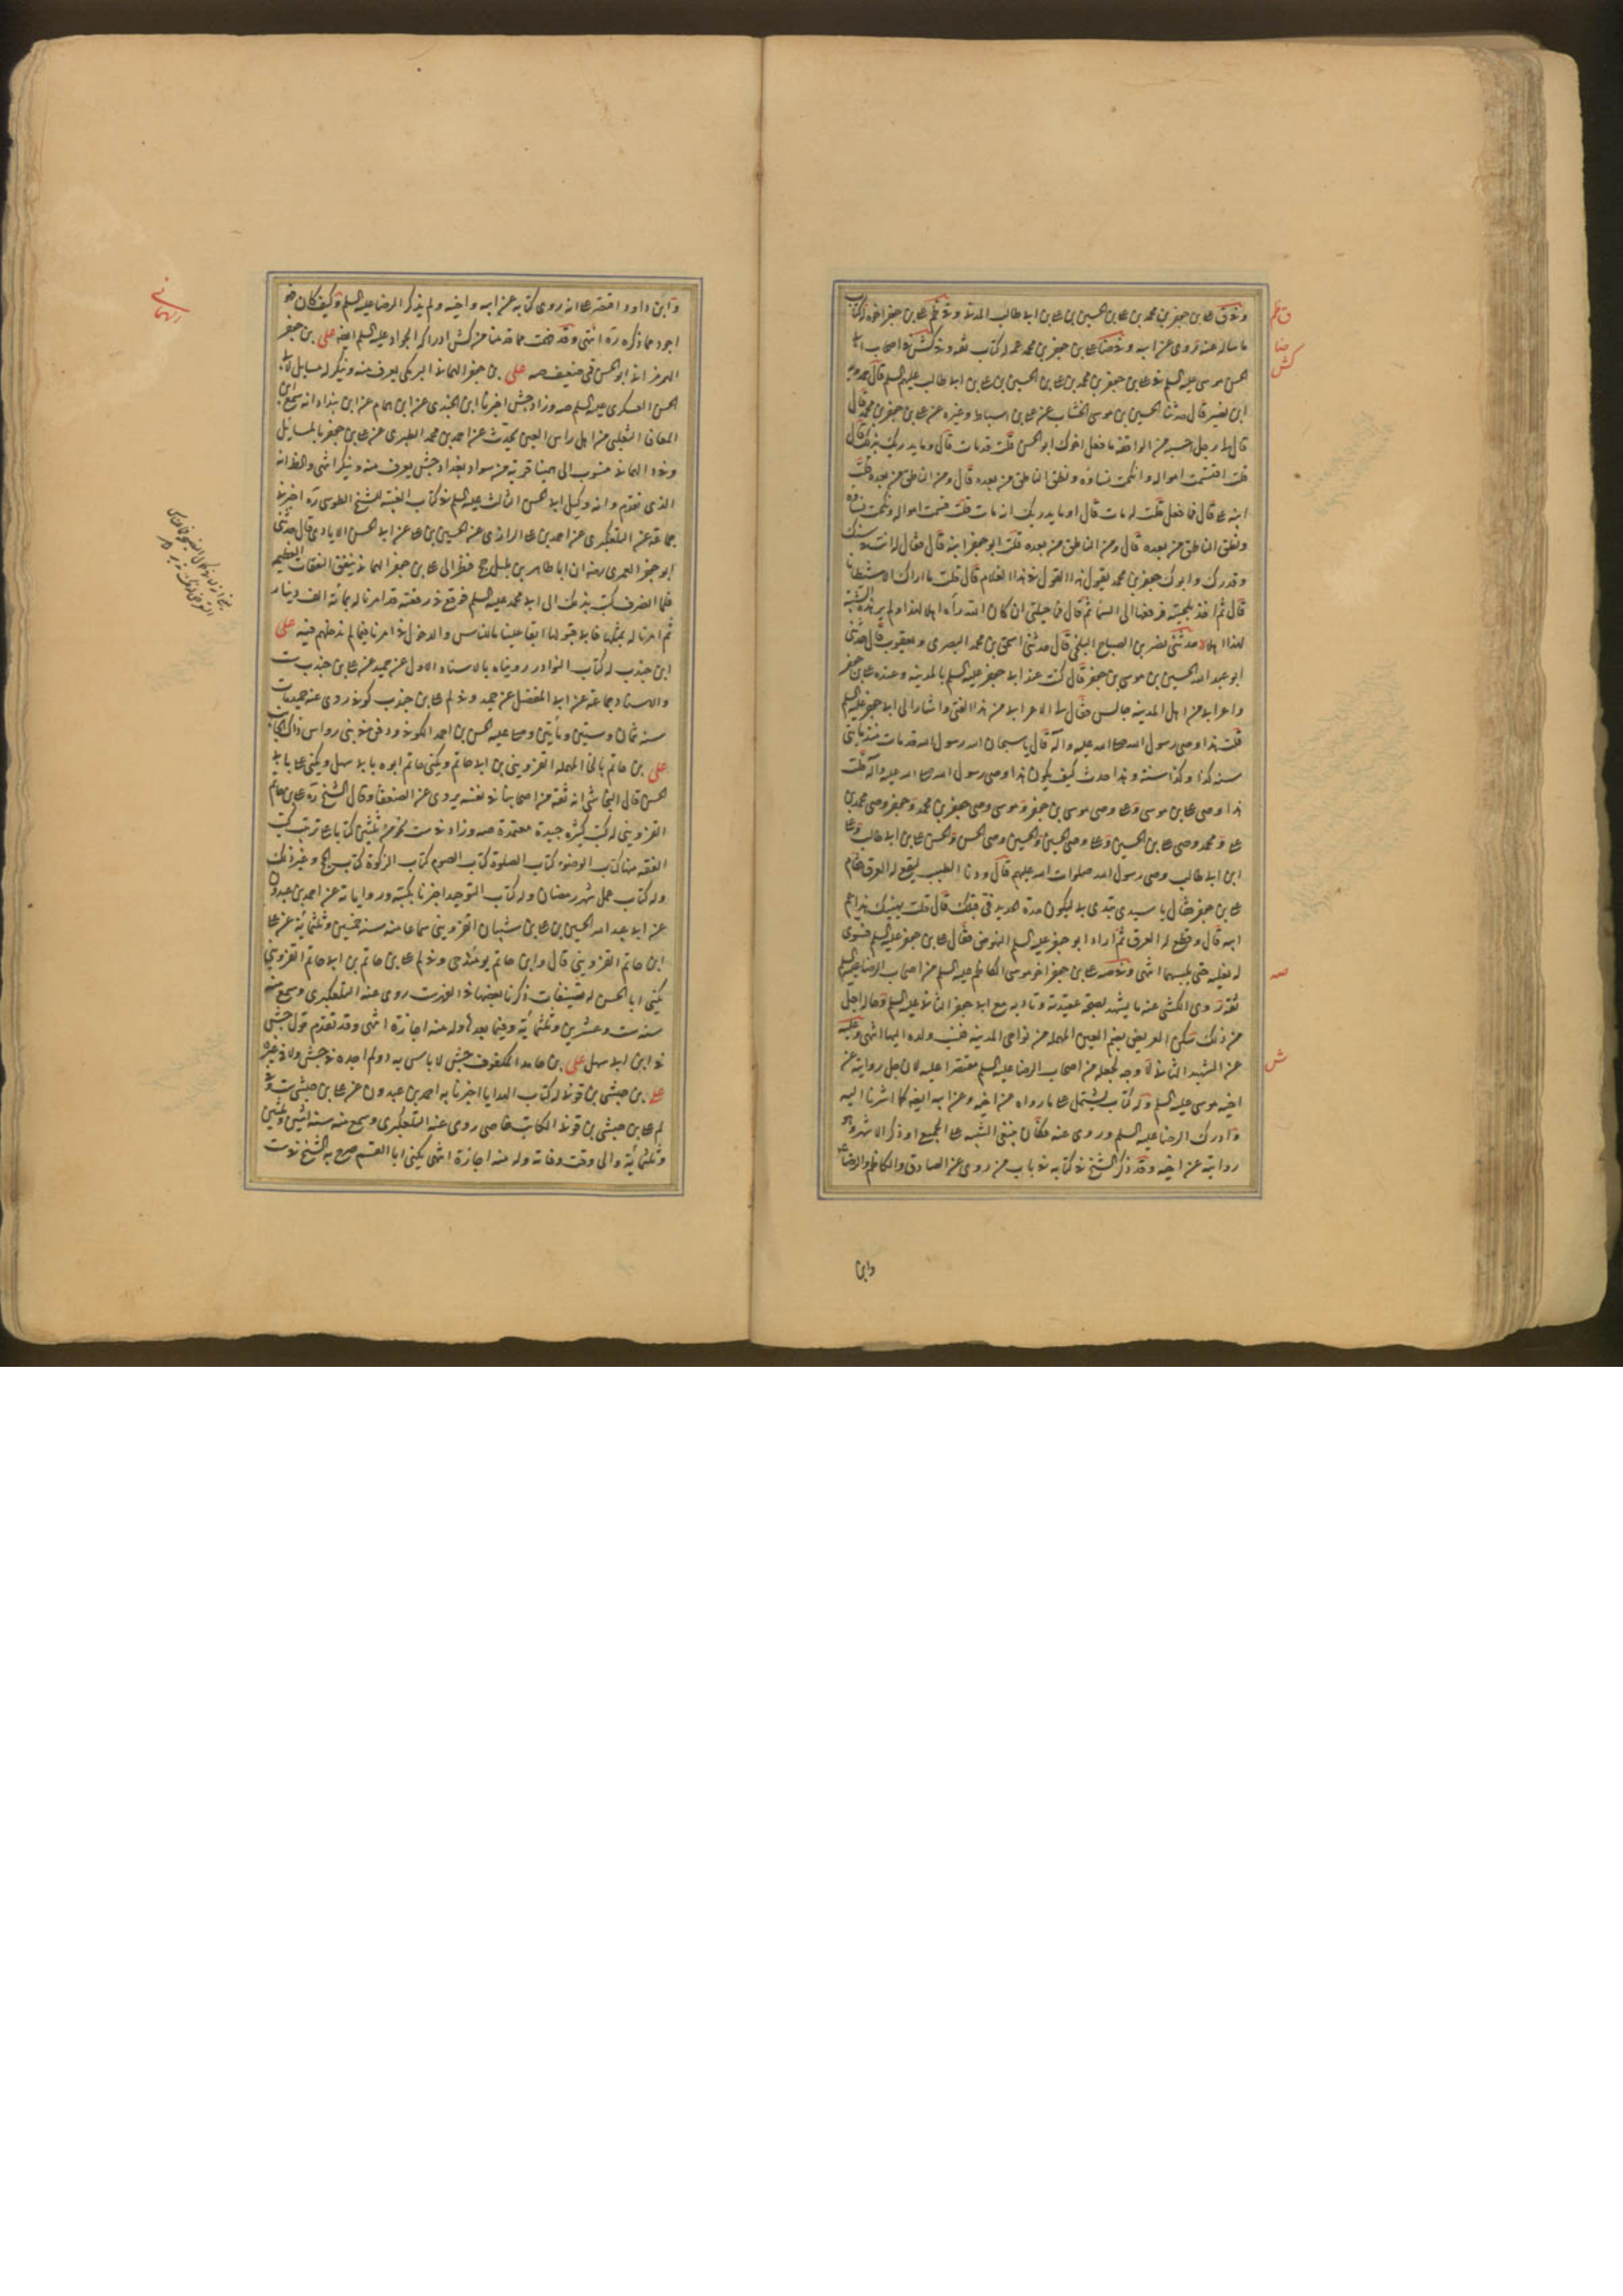 وفي ق علي بن جعفر بن محمد بن علي بن الحسين بن علي بن ابي طالب المدني وفي ظم علي بن جعفر اخوه له كتاب
ما ساله عنه روى عن ابيه وفي ضا علي بن جعفر بن محمد عمه له كتاب ثقة وفي كش في اصحاب ابي
الحسن موسى عليه السلم في علي بن جعفر بن محمد بن علي بن الحسين بن علي بن ابي طالب عليهم السلم قال حمدويه
ابن نصير قال حدثنا الحسين بن موسى الخشاب عن علي بن اسباط وغيره عن علي بن جعفر بن محمد قال
قال لي رجل احسبه من الواقفة ما فعل اخوك ابو الحسن قلت قد مات قال وما يدريك بذلك قال
قلت اقتسمت امواله وانكحت نساؤه ونطق الناطق من بعده قال ومن الناطق من بعده قلت
ابنه علي قال فما فعل قلت له مات قال وما يدريك انه مات قلت قسمت امواله ونكحت نساؤه
ونطق الناطق من بعده قال ومن الناطق من بعده قلت ابو جعفر ابنه قال فقال له انت في سنك
وقدرك وابوك جعفر بن محمد تقول هذا القول في هذا الغلام قال قلت ما اراك الا شيطانا
قال ثم اخذ بلحيته فرفعها الى السما ثم قال فما حيلتي ان كان الله رآه اهلا لهذا ولم ير هذه الشيبة
لهذا اهلا حدثني نصر بن الصباح البلخي قال حدثني اسحق بن محمد البصري ابو يعقوب قال حدثني
ابو عبد الله الحسين بن موسى بن جعفر قال كنت عند ابي جعفر عليه السلم بالمدينة وعنده علي بن جعفر
واعرابي من اهل المدينة جالس فقال لي الاعرابي من هذا الفتى واشار الى ابي جعفر عليه السلم
قلت هذا وصي رسول الله صلى الله عليه وآله قال يا سبحان الله رسول الله قد مات منذ مائتي
سنة كذا وكذا سنة وهذا حدث كيف يكون هذا وصي رسول الله صلى الله عليه وآله قلت
هذا وصي علي بن موسى وعلي وصي موسى بن جعفر وموسى وصي جعفر بن محمد وجعفر وصي محمد بن
علي ومحمد وصي علي بن الحسين وعلي وصي الحسين والحسين وصي الحسن والحسن وصي علي بن ابي طالب وعلي
ابن ابي طالب وصي رسول الله صلوات الله عليهم قال ودنا الطبيب ليقطع له العرق فقام
علي بن جعفر فقال يا سيدي تبدى بي ليكون حدة الحديد في قبلك قال قلت يهنيك هذا عم
ابيه قال وقطع له العرق ثم اراد ابو جعفر عليه السلم النهوض فقام علي بن جعفر عليه السلم فسوى
له نعليه حتى يلبسهما انتهى وفي صه علي بن جعفر اخو موسى الكاظم عليه السلم من اصحاب الرضا عليه السلم
ثقة روى الكشي عنه ما يشهد بصحة عقيدته وتادبه مع ابي جعفر الثاني عليه السلم وحاله اجل
من ذلك سكن العريض بضم العين المهملة من نواحي المدينة فنسب ولده اليها انتهى وعليه
عن الشهيد الثاني لا وجه لجعله من اصحاب الرضا عليه السلم مقتصرا عليه لان جل روايته عن
اخيه موسى عليه السلم وله كتاب يشتمل على ما رواه عن اخيه وعن ابيه ايضا كما اشرنا اليه
وادرك الرضا عليه السلم وروى عنه فكان ينبغي التنبيه على الجميع او ذكر الاشهر وهو
روايته عن اخيه وقد ذكر الشيخ في كتابه في باب من روى عن الصادق والكاظم والرضا ع
وابن
ق ظم
ضا
كش
صه
ش
وابن داود اقتصر على انه روى كتابه عن ابيه واخيه ولم يذكر الرضا عليه السلم وكيف كان فهو
اجود مما ذكره ره انتهى وقد فهمت مما قدمنا من كش ادراكه الجواد عليه السلم ايضا علي بن جعفر
الهرمزاني ابو الحسن قمي ضعيف صه علي بن جعفر الهماني البرمكي يعرف منه وينكر له مسايل لابي
الحسن العسكري عليه السلم صه وزاد جش اخبرنا ابن الجندي عن ابن همام عن ابن بنداد انه سمع ابن
المعافا الثعلبي من اهل راس العين يحدث عن احمد بن محمد الطبري عن علي بن جعفر بالمسايل
وفي د الهماني منسوب الى همينا قرية من سواد بغداد جش يعرف منه وينكر انتهى والظ انه
الذي تقدم وانه وكيل ابي الحسن الثالث عليه السلم في كتاب الغيبة للشيخ الطوسي ره اخبرنا
جماعة عن التلعكبري عن احمد بن علي الرازي عن الحسين بن علي عن ابي الحسن الايادي قال حدثني
ابو جعفر العمري رضه ان ابا طاهر بن بلبل حج فنظر الى علي بن جعفر الهماني ينفق النفقات العظيمة
فلما انصرف كتب بذلك الى ابي محمد عليه السلم فوقع في رقعته قد امرنا له بمائة الف دينار
ثم امرنا له بمثلها فابى قبولها ابقا علينا ما للناس والدخول في امرنا فيما لم ندخلهم فيه علي
ابن جندب له كتاب النوادر رويناه بالاسناد الاول عن حميد عن علي بن جندب ست
والاسناد جماعة عن ابي المفضل عن حميد وفي لم علي بن جندب كوفي روى عنه حميد مات
سنة ثمان وستين ومأتين وصلى عليه الحسن بن احمد الكوفي ودفن في بني رواس
علي بن حاتم بالحا المهملة القزويني بن ابي حاتم ويكنى حاتم ابوه بابي سهل ويكنى علي بابي
الحسن قال النجاشي انه ثقة من اصحابنا في نفسه يروي عن الضعفا وقال الشيخ ره علي بن حاتم
القزويني له كتب كثيرة جيدة معتمدة صه وزاد في ست نحو من ثلثين كتابا على ترتيب كتب
الفقه منها كتاب الوضوء كتاب الصلوة كتاب الصوم كتاب الزكوة كتاب الحج وغير ذلك
وله كتاب عمل شهر رمضان وله كتاب التوحيد اخبرنا بكتبه ورواياته عن احمد بن عبدون
عن ابي عبد الله الحسين بن علي بن شيبان القزويني سماعا منه سنة خمسين وثلثمائة عن علي
ابن حاتم القزويني قال وابن حاتم يومئذ حي وفي لم علي بن حاتم بن ابي حاتم القزويني
يكنى ابا الحسن له تصنيفات ذكرنا بعضها في الفهرست روى عنه التلعكبري وسمع منه
سنة ست وعشرين وثلثمائة وفيما بعدها وله منه اجازة انتهى وقد تقدم قول جش
في ابن ابي سهل علي بن حامد المكفوف جش لا باس به د ولم اجده في جش ولا في غيره
علي بن حبشي بن قوني له كتاب الهدايا اخبرنا به احمد بن عبدون عن علي بن حبشي ست وفي
لم علي بن حبشي بن قوني الكاتب خاصي روى عنه التلعكبري وسمع منه سنة اثنين وثلثين
وثلثمائة والى وقت وفاته وله منه اجازة انتهى يكنى ابا القسم صرح به الشيخ في ست